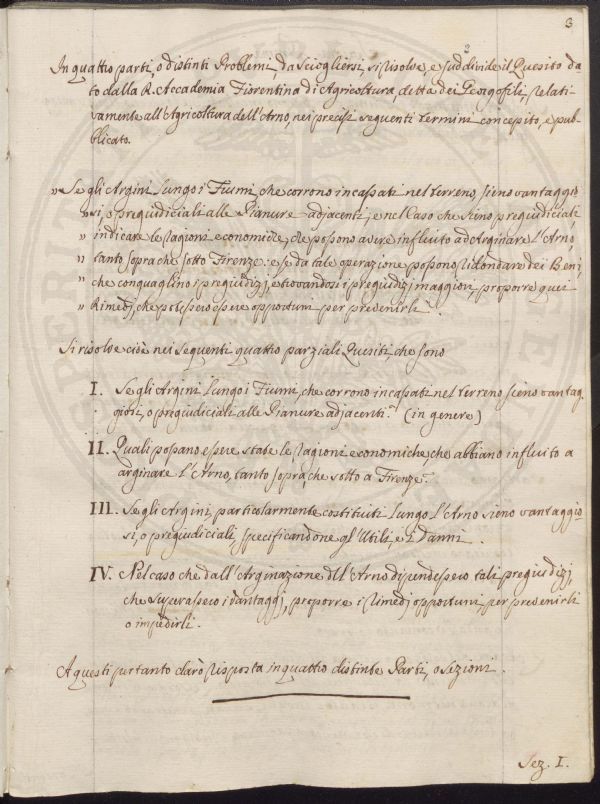 3
In quattro parti, o distinti Problemi, da sciogliersi, si risolve, e suddivide il Quesito da-
to dalla R. Accademia Fiorentina di Agricoltura, detta dei Georgofili, relati-
vamente all'Agricoltura dell'Arno, nei precisi seguenti termini concepito, e pub-
blicato.
„ Se gli Argini lungo i Fiumi, che corrono incassati nel terreno, sieno vantaggio
„ si, o pregiudiciali alle Pianure adjacenti, e nel Caso che sieno pregiudiciali
„ indicare le ragioni economiche, che possono avere influito ad Arginare l'Arno,
„ tanto sopra che sotto Firenze: e se da tale operazione possono ridondare dei Beni,
„ che conguaglino i pregiudizj, e trovandosi i pregiudizj maggiori, proporre quei
„ Rimedj, che potessero essere opportuni per prevenirli „.
Si risolve cioè nei seguenti quattro parziali Quesiti, che sono
I. Se gli Argini lungo i Fiumi, che corrono incassati nel terreno sieno vantag-
giosi, o pregiudiciali alle Pianure adjacenti? (in genere)
II. Quali possano essere state le ragioni economiche, che abbiano influito a
arginare l'Arno, tanto sopra, che sotto a Firenze?
III. Se gli Argini, particolarmente costituiti lungo l'Arno sieno vantaggio-
si, o pregiudiciali, specificandone gl'Utili, e i Danni.
IV. Nel caso che dall'Arginazione dell'Arno dipendessero tali pregiudizj,
che superassero i vantaggj, proporre i rimedj opportuni per prevenirli
o impedirli.
A questi pertanto darò risposta in quattro distinte Parti, o Sezioni.
Sez. I.